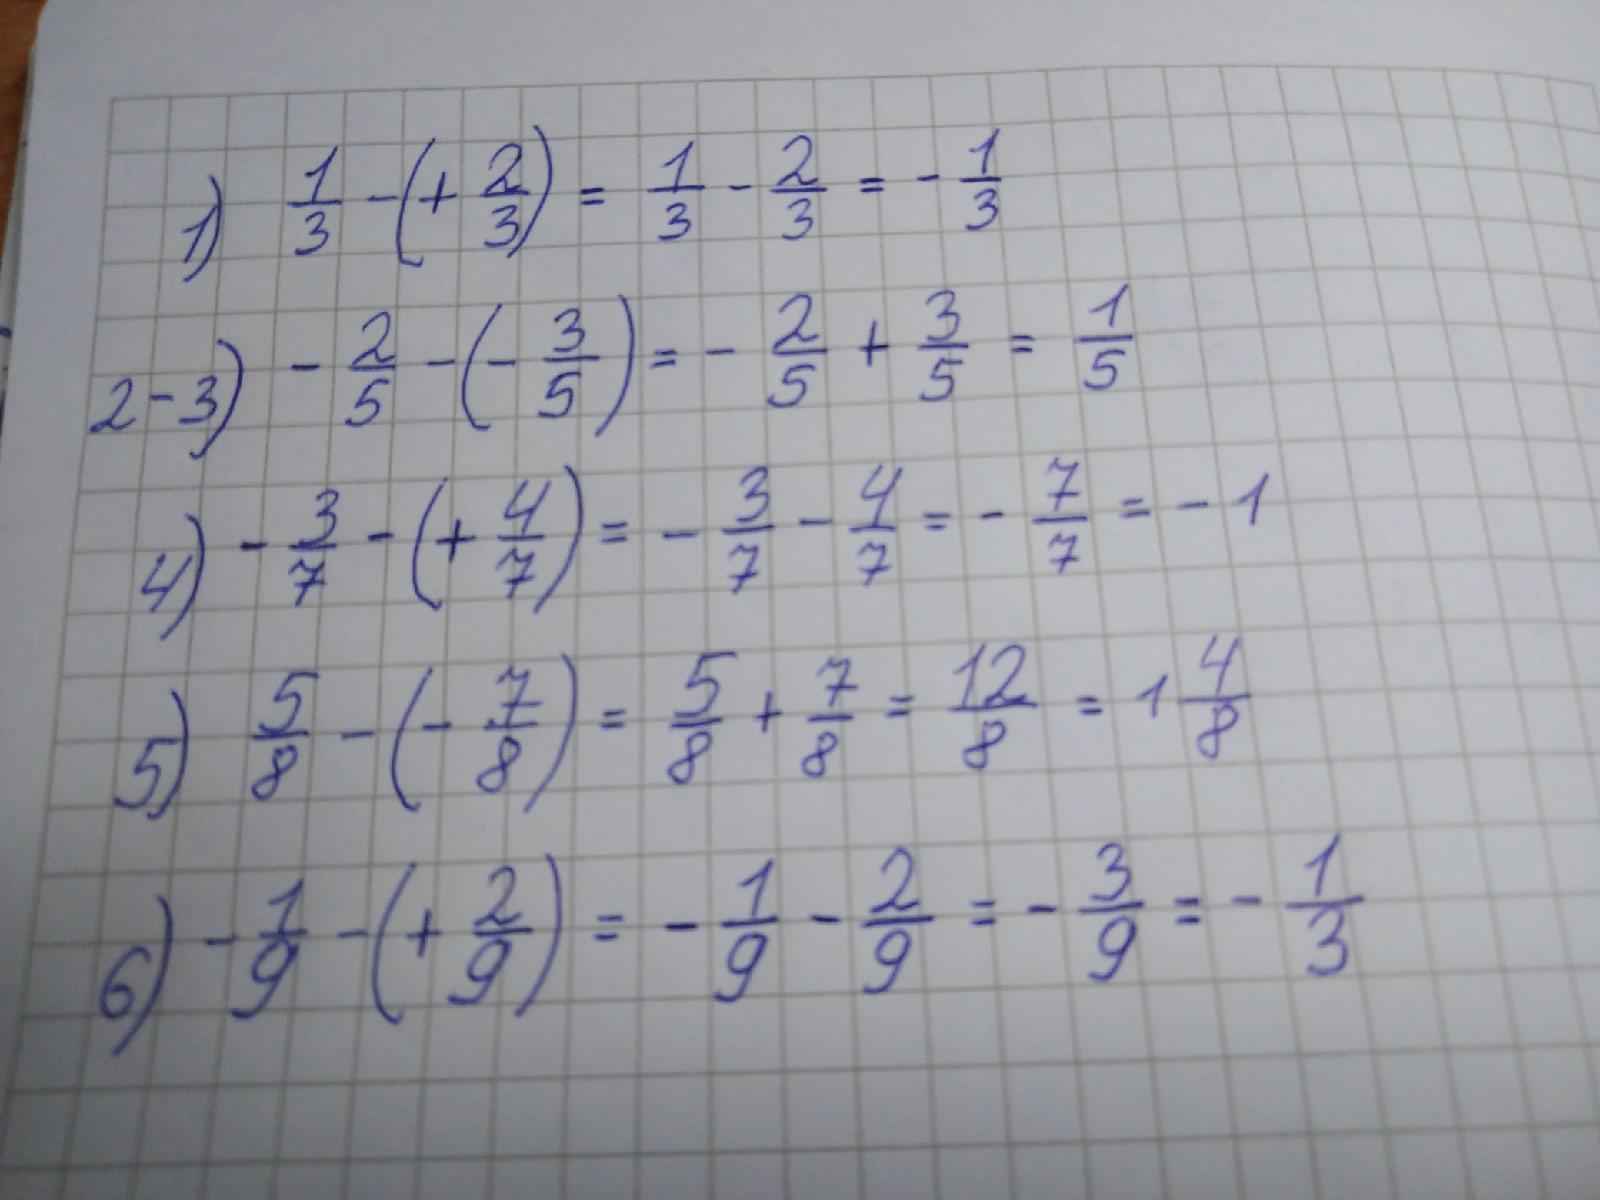 1) 1/3 - (+ 2/3) = 1/3 - 2/3 = - 1/3
2-3) - 2/5 - (- 3/5) = - 2/5 + 3/5 = 1/5
4) - 3/7 - (+ 4/7) = - 3/7 - 4/7 = - 7/7 = - 1
5) 5/8 - (- 7/8) = 5/8 + 7/8 = 12/8 = 1 4/8
6) - 1/9 - (+ 2/9) = - 1/9 - 2/9 = - 3/9 = - 1/3